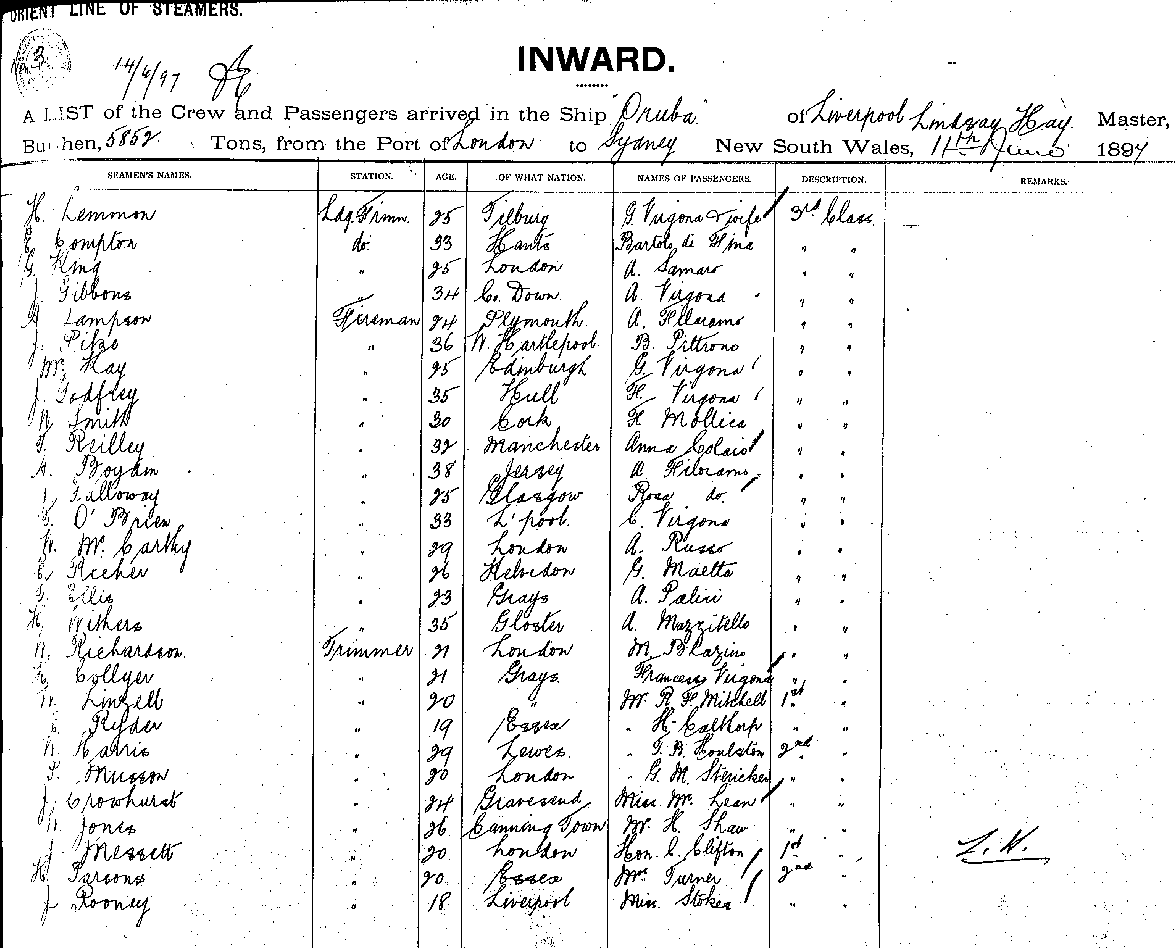 ORIENT LINE OF STEAMERS.
3
14/6/97
INWARD.
A LIST of the Crew and Passengers arrived in the Ship "Oruba" of Liverpool Lindsay Hay Master,
Burthen, 5852 Tons, from the Port of London to Sydney New South Wales, 11th June 1897
SEAMEN'S NAMES. STATION. AGE. OF WHAT NATION. NAMES OF PASSENGERS. DESCRIPTION. REMARKS.
H. Lemmon Ldg Firmn. 25 Tilburg G. Virgona & wife 3rd Class
E. Compton do. 33 Hants Bartolo de Fina " "
G. King " 25 London A. Samaro " "
J. Gibbons 34 Co. Down. A. Virgona " "
Lampson Fireman 24 Plymouth. A. " "
J. " 36 W. Hartlepool B. Pittrono " "
Wm. Hay " 25 Edinburgh G. Virgona " "
J. Godfrey " 35 Hull F. Virgona " "
Smith " 30 Cork F. Mollica " "
T. Reilley " 32 Manchester Anna Colaio " "
A. Boydin " 38 Jersey A. Filoramo " "
Galloway " 25 Glasgow Rosa do. " "
O'Brien " 33 L'pool. C. Virgona " "
W. McCarthy " 29 London A. Russo " "
Richer " 26 Kelvedon G. Maetta " "
Ellis " 23 Grays A. Palini " "
H. Withers " 35 Gloster A. Mazzitello " "
Richardson Trimmer 21 London M. Blazino " "
Collyer " 21 Grays Francesco Virgona " "
W. Linzell " 20 " Mr. R. F. Mitchell 1st "
Ryder " 19 Essex " H. Calthorp " "
Harris " 29 Lewes. " T. B. Houlston 2nd "
T. Musson " 20 London " G. M. Stericker " "
J. Crowhurst " 24 Gravesend Miss McLean " "
Jones " 26 Canning Town Mr. H. Shaw " "
J. Messett " 20 London Hon. C. Clifton 1st " L. H.
H. Parsons " 20 Essex Mrs. Turner 2nd "
J. Rooney " 18 Liverpool Miss Stokes " "